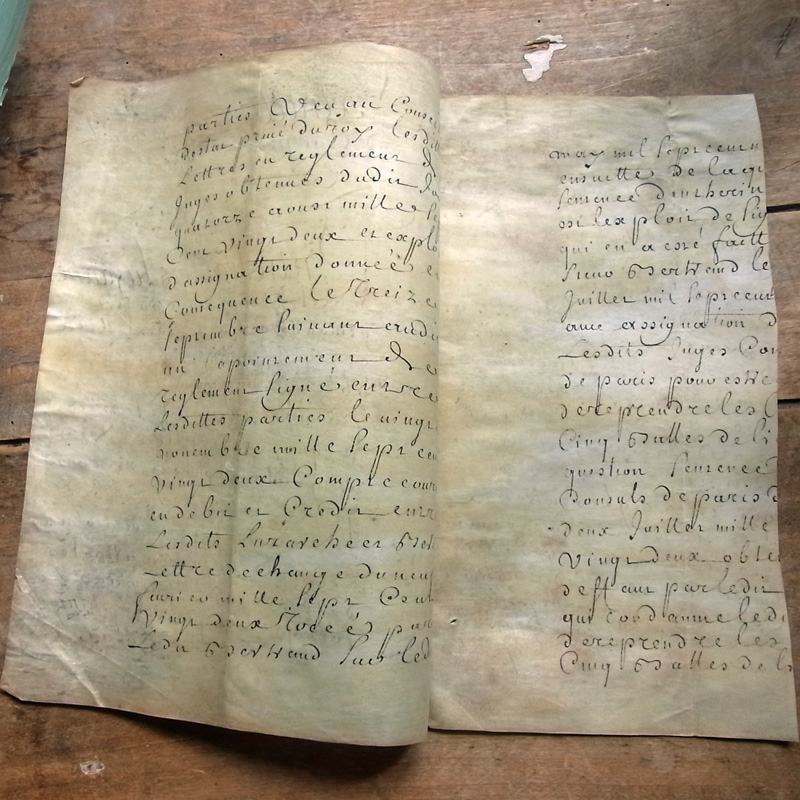 parties Veu au Conse
destat privé du roy lesdit
Lettres en reglement de
Juges obtenues dudit Jo
quatorze aoust mille se
Cent vingt deux et explo
dassignation donnée en
Consequence le Treize
septembre suivant erdudi
un apointement de
reglement signé entre
Lesdittes parties le vingt
novembre mille sept cen
vingt deux Compte cour
en debit et Credit entre
Lesdits Lu et Ber
Lettre de change du neuf
mille sept Cent
Vingt deux par
Ledit Bertrand sur led
may mil sept cent
ensuitte de laqu
sentence dintherin
est lexploit de sig
qui en a esté faitt
Bertrand le
Juillet mil sept cent
avec assignation d
Lesdits Juges Con
de paris pour estre
de reprendre les
Cinq Balles de li
question sentence
Consuls de paris d
deux Juillet mille
Vingt deux obte
deffaut par ledit
qui Condamne ledi
de reprendre les
Cinq Balles de li